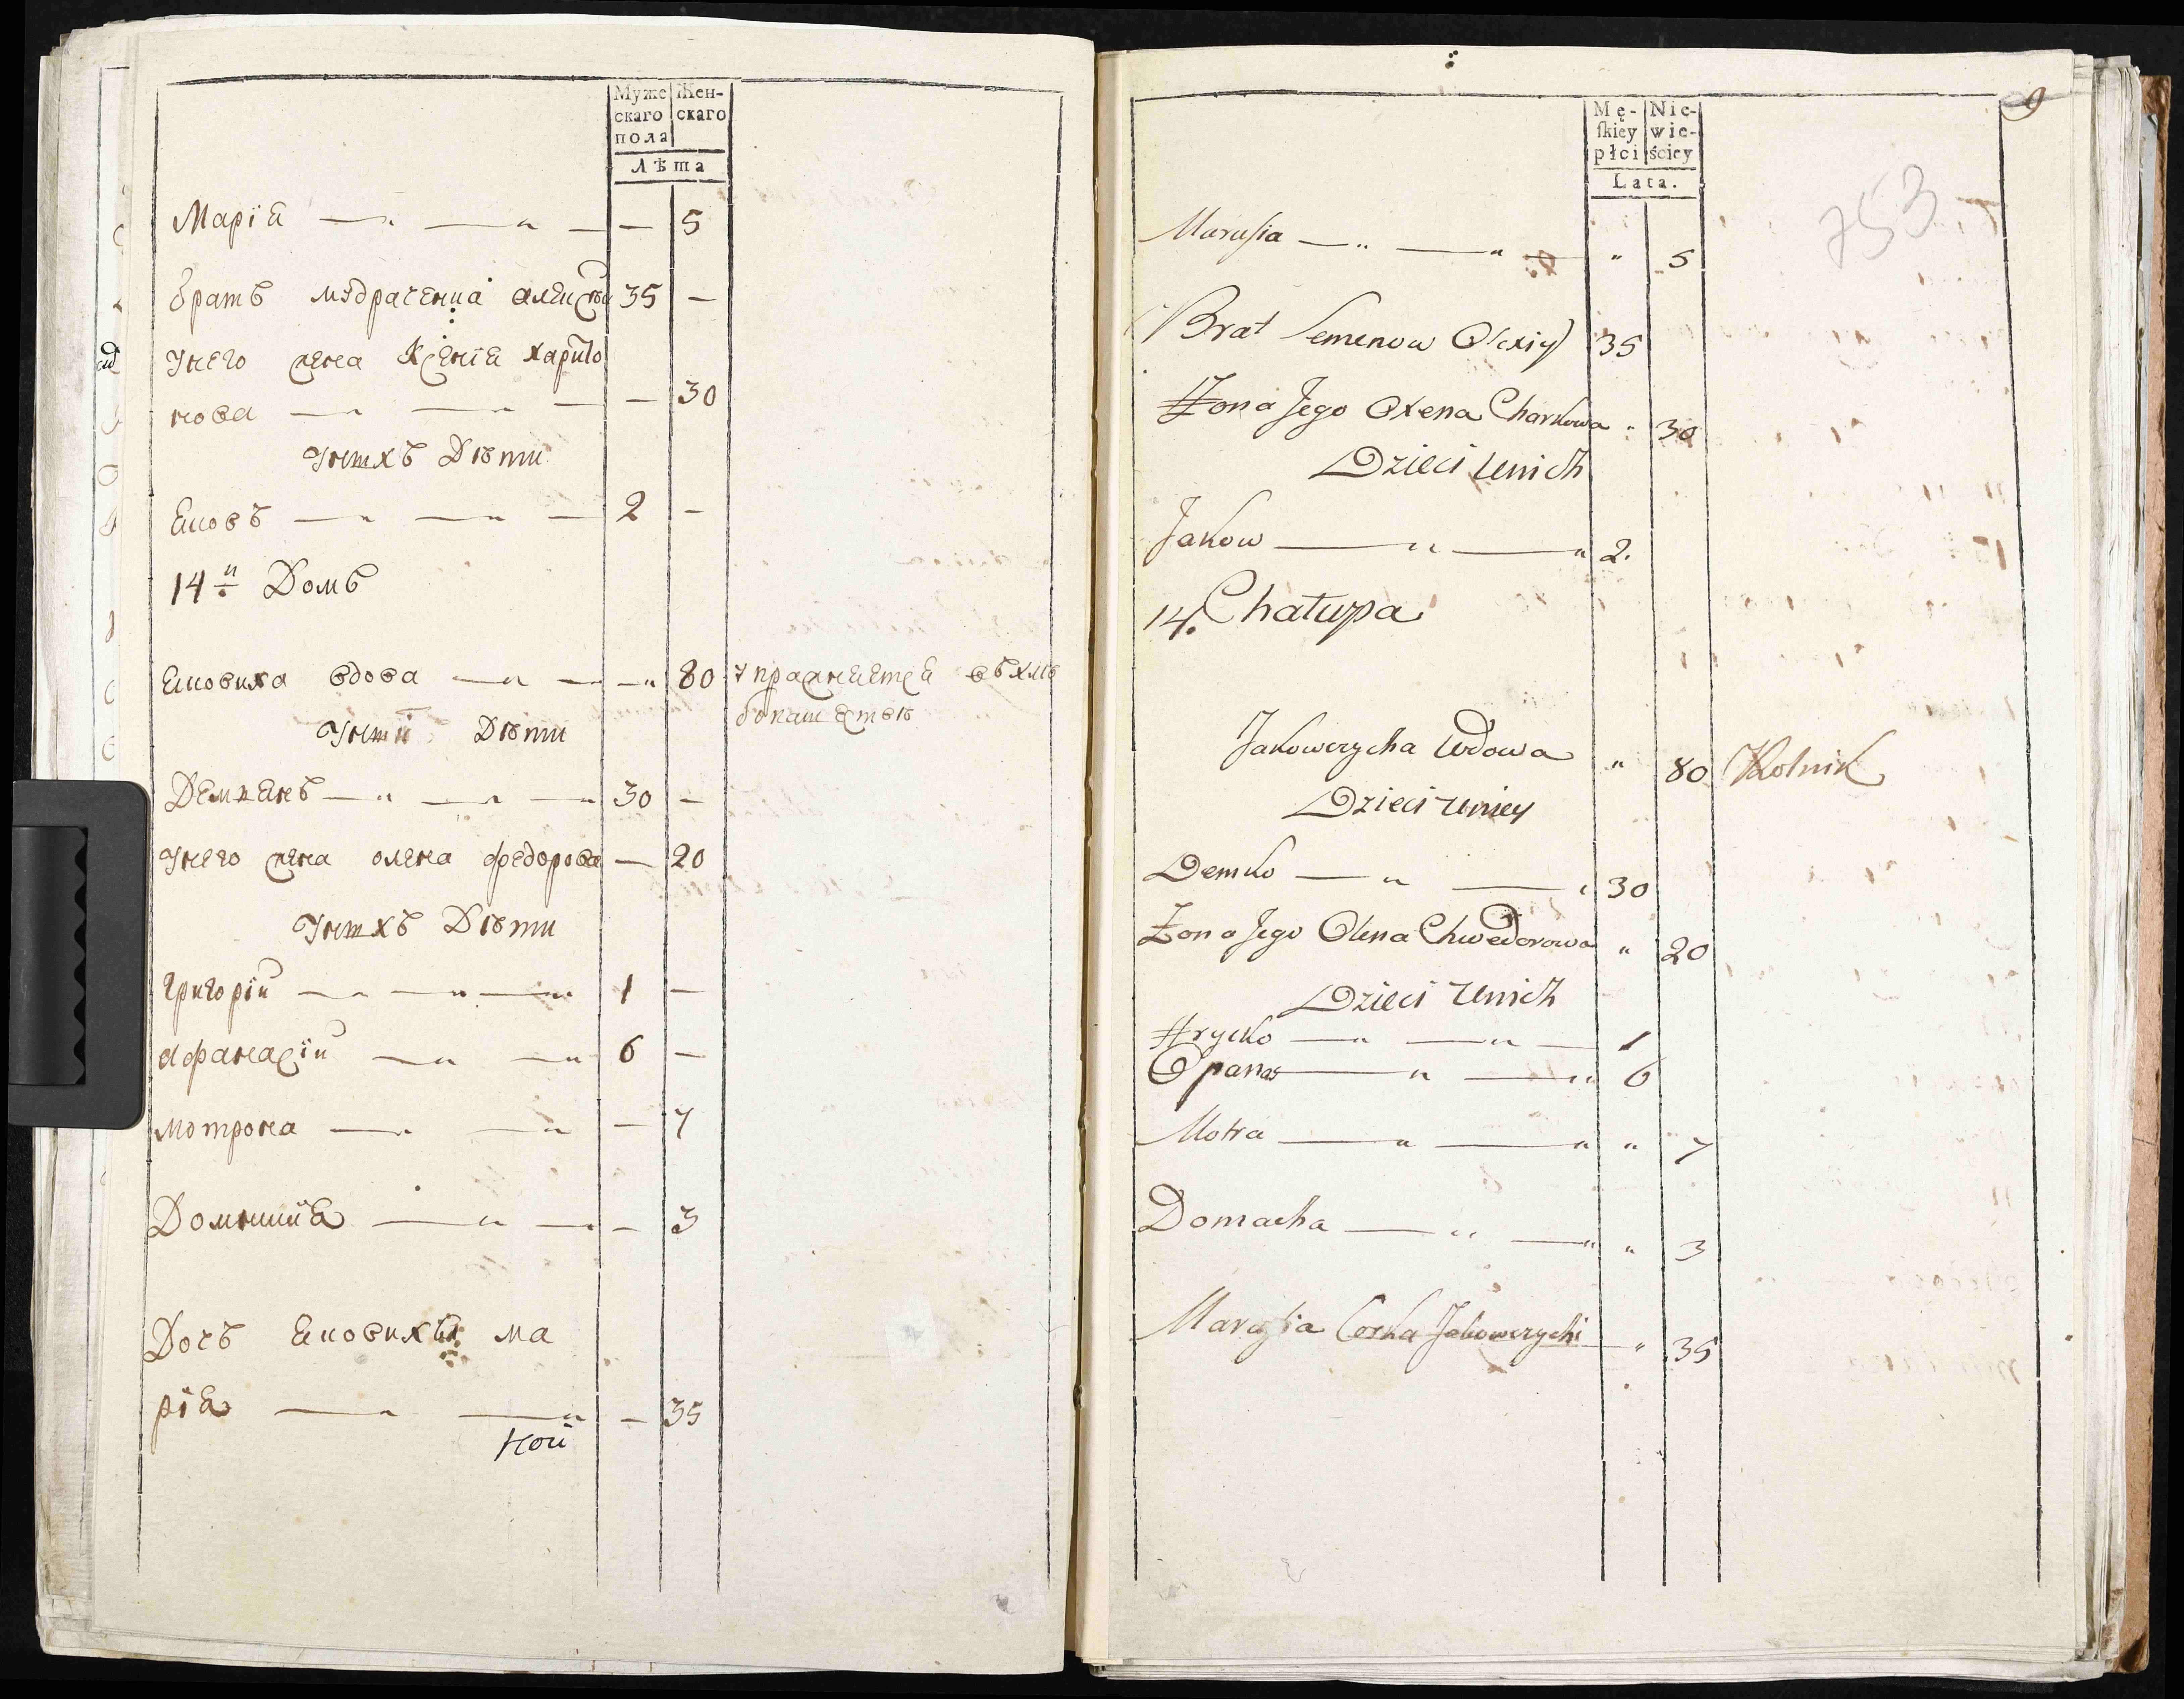 Муже
скаго
пола
Жен-
скаго
Лѣта
Марїя — — — — 5
братъ мудраченка алексѣй 35 —
Унего жена Ксенїя харито
нова — — — — 30
Унихъ Дѣти
Яковъ — — — 2 —
14й Домъ
Яковиха вдова — — — 80 упражняется въ хлѣ
бопашествѣ
Уней Дѣти
Демьянъ — — — 30 —
Унего жена олена федорова — 20
Унихъ Дѣти
Григорїй — — — 1 —
Афанасїй — — 6 —
Мотрона — — — 7
Домникія — — — 3
Дочь Яковихи ма
рїя — — — 35
Ной
9
Mę-
skiey
płci
Nie-
wie-
ściey
Lata.
753
Marusia — „ — „ — „ 5
Brat Semenow Olexiy 35
Żona Jego Oxena Charkowa „ 30
Dzieci Unich
Jakow — „ — „ 2.
14. Chałupa
Jakowczycha Wdowa „ 80 Rolnik
Dzieci Uniey
Demko — „ — „ 30
Żona Jego Olena Chwedorowa „ 20
Dzieci Unich
Hrycko — „ — „ — 1
Opanas — „ — „ 6
Motra — „ — „ „ 7
Domacha — „ — „ „ 3
Marusia Corka Jakowczychi — „ 35